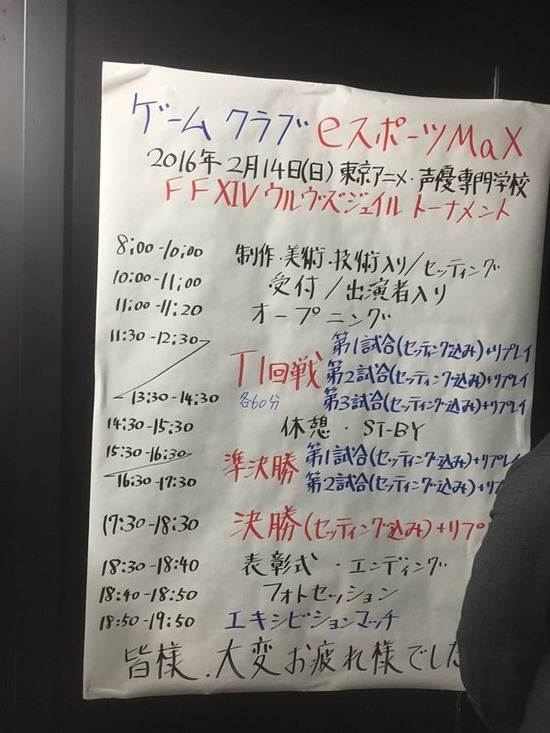 ゲームクラブ eスポーツMaX
2016年2月14日(日) 東京アニメ・声優専門学校
FFXIV ウルヴズジェイル トーナメント
8:00-10:00 制作・美術・技術入り/セッティング
10:00-11:00 受付/出演者入り
11:00-11:20 オープニング
11:30-12:30 第1試合(セッティング込み)+リプレイ
T1回戦 第2試合(セッティング込み)+リプレイ
13:30-14:30 各60分 第3試合(セッティング込み)+リプレイ
14:30-15:30 休憩・ST-BY
15:30-16:30 準決勝 第1試合(セッティング込み)+リプレイ
16:30-17:30 第2試合(セッティング込み)+リプ
17:30-18:30 決勝(セッティング込み)+リプ
18:30-18:40 表彰式・エンディング
18:40-18:50 フォトセッション
18:50-19:50 エキシビションマッチ
皆様、大変お疲れ様でした